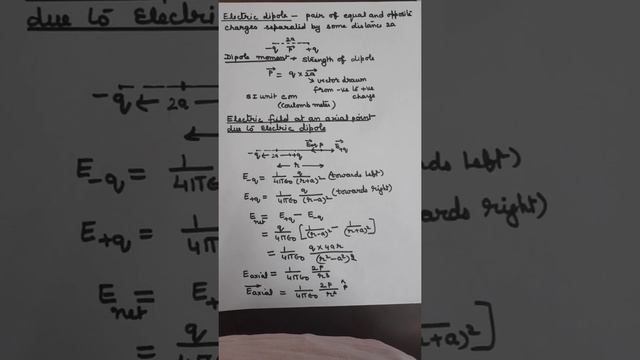 Electric dipole - pair of equal and opposite
charges separated by some distance 2a
2a
-q P⃗ +q
Dipole moment → strength of dipole
P⃗ = q × 2a⃗
→ vector drawn
from -ve to +ve
charge
SI unit com
(Coulomb meter)
Electric field at an axial point
due to electric dipole
E⃗-q P E⃗+q
-q 2a +q
← r →
E-q = 1/4π∈0 q/(r+a)² (towards left)
E+q = 1/4π∈0 q/(r-a)² (towards right)
Enet = E+q - E-q
= q/4π∈0 [1/(r-a)² - 1/(r+a)²]
= 1/4π∈0 q×4ar/(r²-a²)2
Eaxial = 1/4π∈0 2P/r3
E⃗axial = 1/4π∈0 2P/r² p̂
due to Ele
-q ← 2a -
E-q = 1/4π∈
E+q = 1/4π∈0
Enet = E+
= q
left)
owards right)
+a)²]